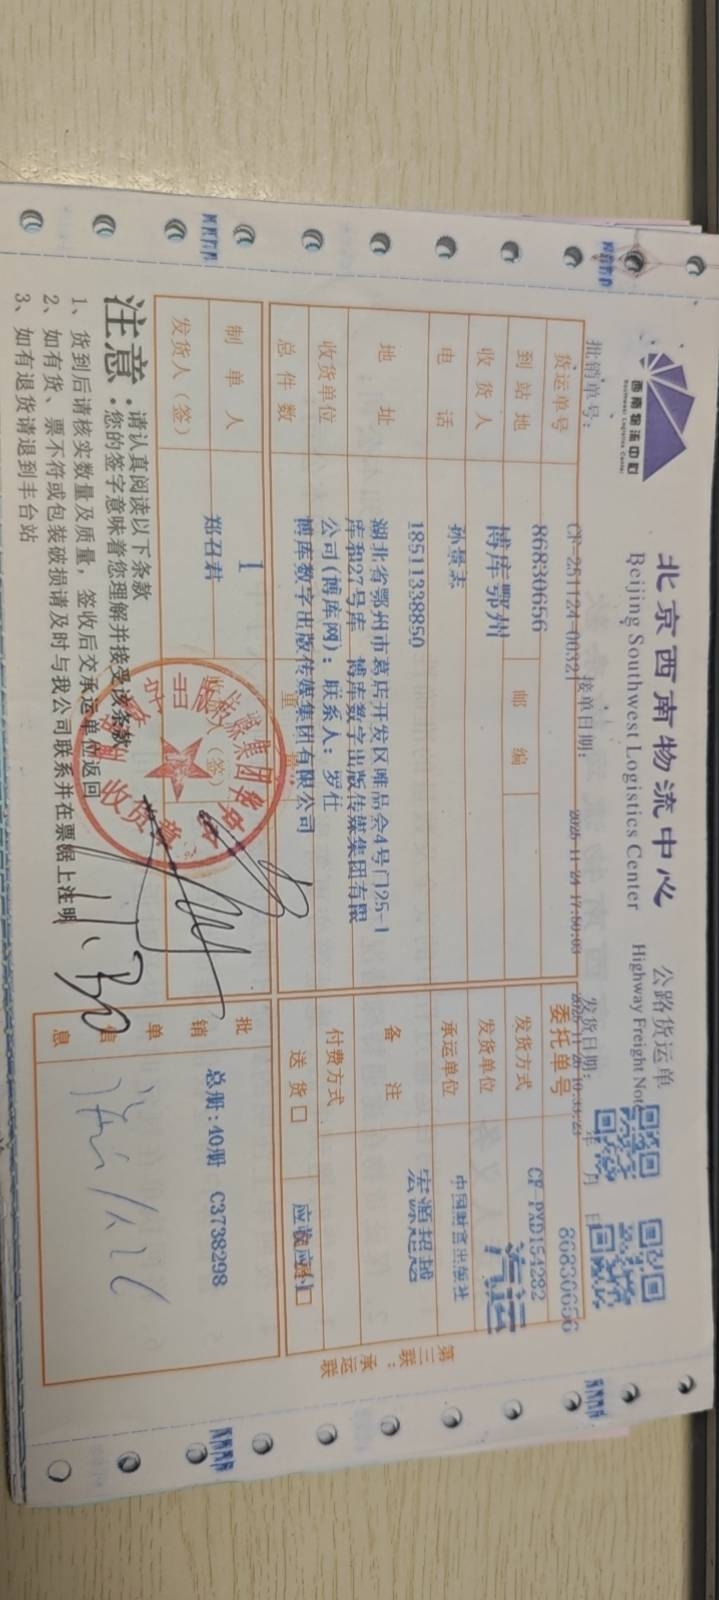 西南物流中心
Southwest Logistics Center
北京西南物流中心
Beijing Southwest Logistics Center
公路货运单
Highway Freight Note
批销单号:
CF-251124-00321
接单日期:
2025-11-24 17:50:03
发货日期:
年 月 日
货运单号
86830656
委托单号
86830656
到站地
博库鄂州
邮编
发货方式
CF-PXD154282
汽运
收货人
孙景志
发货单位
中国财富出版社
电话
18511338850
承运单位
宏源超越
地址
湖北省鄂州市葛店开发区唯品会4号门25-1
库和27号库 博库数字出版传媒集团有限
公司(博库网); 联系人: 罗仕
备注
收货单位
博库数字出版传媒集团有限公司
付费方式
总件数
1
重
送货
应收应付
制单人
郑召君
(签)
发货人(签)
批销单信息
总册:40册 C3738298
第三联:承运联
注意:
请认真阅读以下条款
您的签字意味着您理解并接受该条款
1、货到后请核实数量及质量,签收后交承运单位返回
2、如有货、票不符或包装破损请及时与我公司联系并在票据上注明
3、如有退货请退到丰台站
收货章